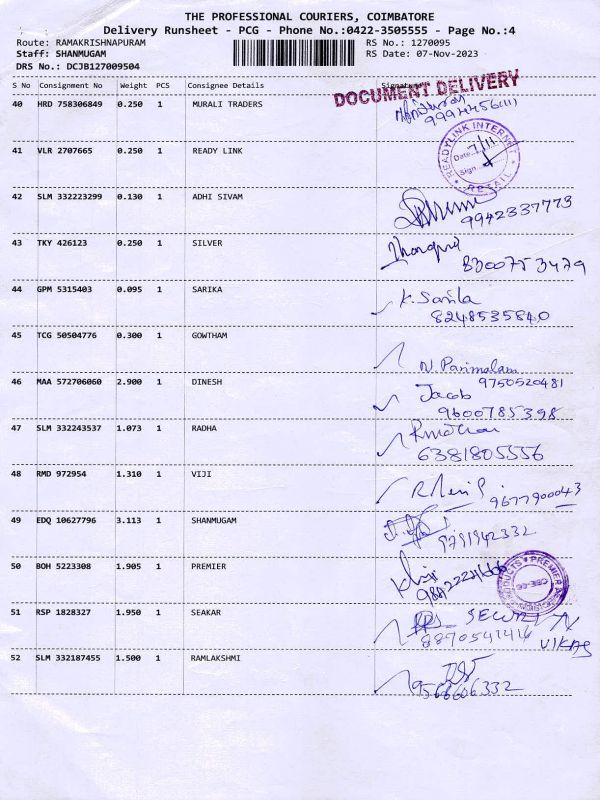 THE PROFESSIONAL COURIERS, COIMBATORE
Delivery Runsheet - PCG - Phone No.:0422-3505555 - Page No.:4
Route: RAMAKRISHNAPURAM RS No.: 1270095
Staff: SHANMUGAM RS Date: 07-Nov-2023
DRS No.: DCJB127009504
S No Consignment No Weight PCS Consignee Details Signature
DOCUMENT DELIVERY
40 HRD 758306849 0.250 1 MURALI TRADERS
41 VLR 2707665 0.250 1 READY LINK
READYLINK INTERNET
Date: 7/11
Sign:
RETAIL
42 SLM 332223299 0.130 1 ADHI SIVAM
9942337773
43 TKY 426123 0.250 1 SILVER
8300753479
44 GPM 5315403 0.095 1 SARIKA K. Sarika
8248535840
45 TCG 50504776 0.300 1 GOWTHAM
N. Parimalam
9750520481
46 MAA 572706060 2.900 1 DINESH Jacob
9600785398
47 SLM 332243537 1.073 1 RADHA
6381805556
48 RMD 972954 1.310 1 VIJI
9677900043
49 EDQ 10627796 3.113 1 SHANMUGAM
9791942332
50 BOH 5223308 1.905 1 PREMIER
PREMIER
51 RSP 1828327 1.950 1 SEAKAR
8870541414
VIKAS
52 SLM 332187455 1.500 1 RAMLAKSHMI
9566606332